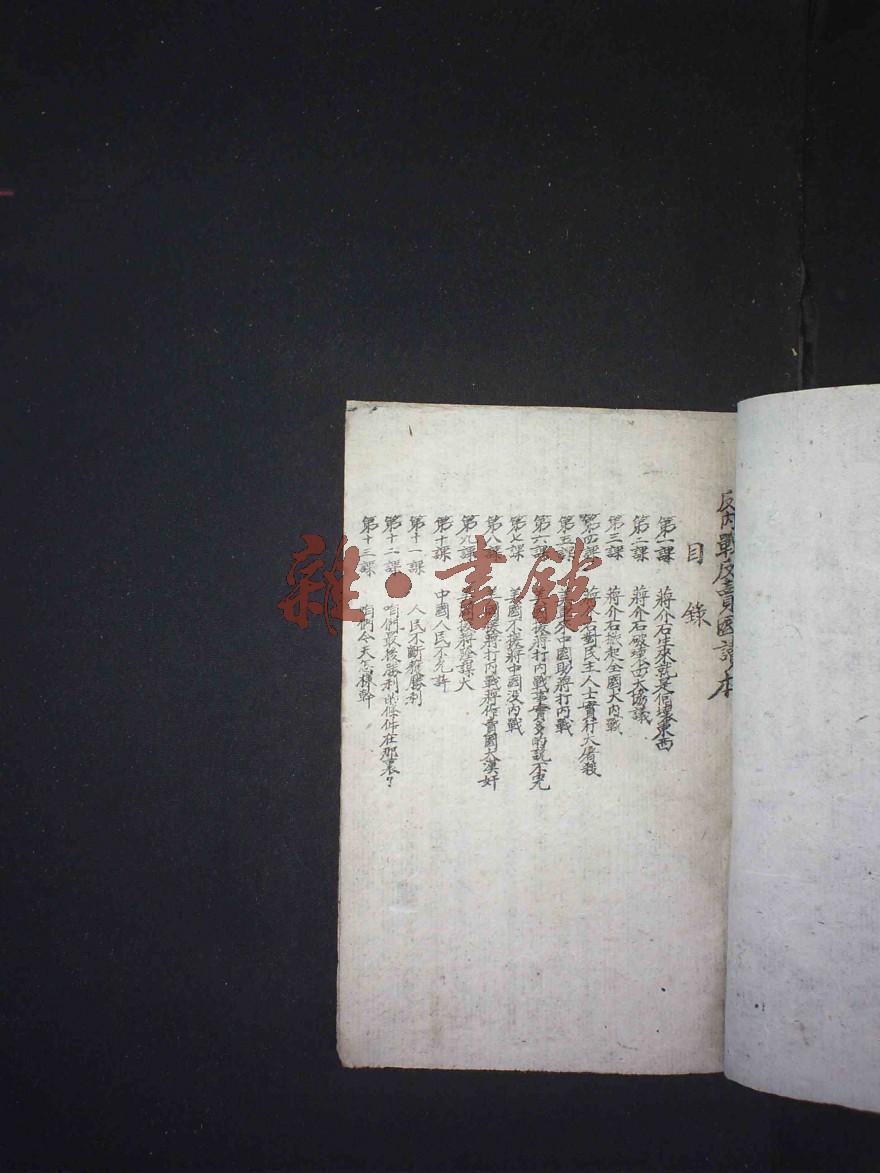 反內戰反賣國讀本
目錄
第一課 蔣介石生來就是個壞東西
第二課 蔣介石破壞四大協議
第三課 蔣介石掀起全國大內戰
第四課 蔣介石對民主人士實行大屠殺
第五課 中國助蔣打內戰
第六課 援蔣打內戰事實多的説不完
第七課 美國不援蔣中國没內戰
第八課 蔣打內戰蔣作賣國大漢奸
第九課 援蔣陰謀大
第十課 中國人民不允許
第十一課 人民不斷獲勝利
第十二課 咱們最後勝利的條件在那裏？
第十三課 咱們今天怎樣幹
雜·書館